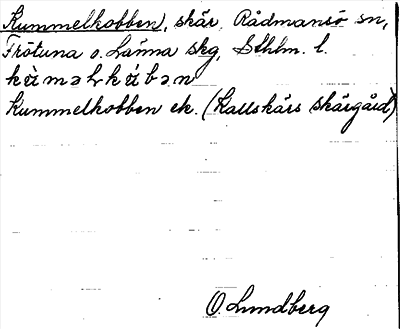 Kummelkobben, skär, Rådmansö sn,
Frötuna o. Länna skg, Sthlm. l.
kùməlkábən
Kummelkobben ek. (Kallskärs skärgård)
O. Lundberg